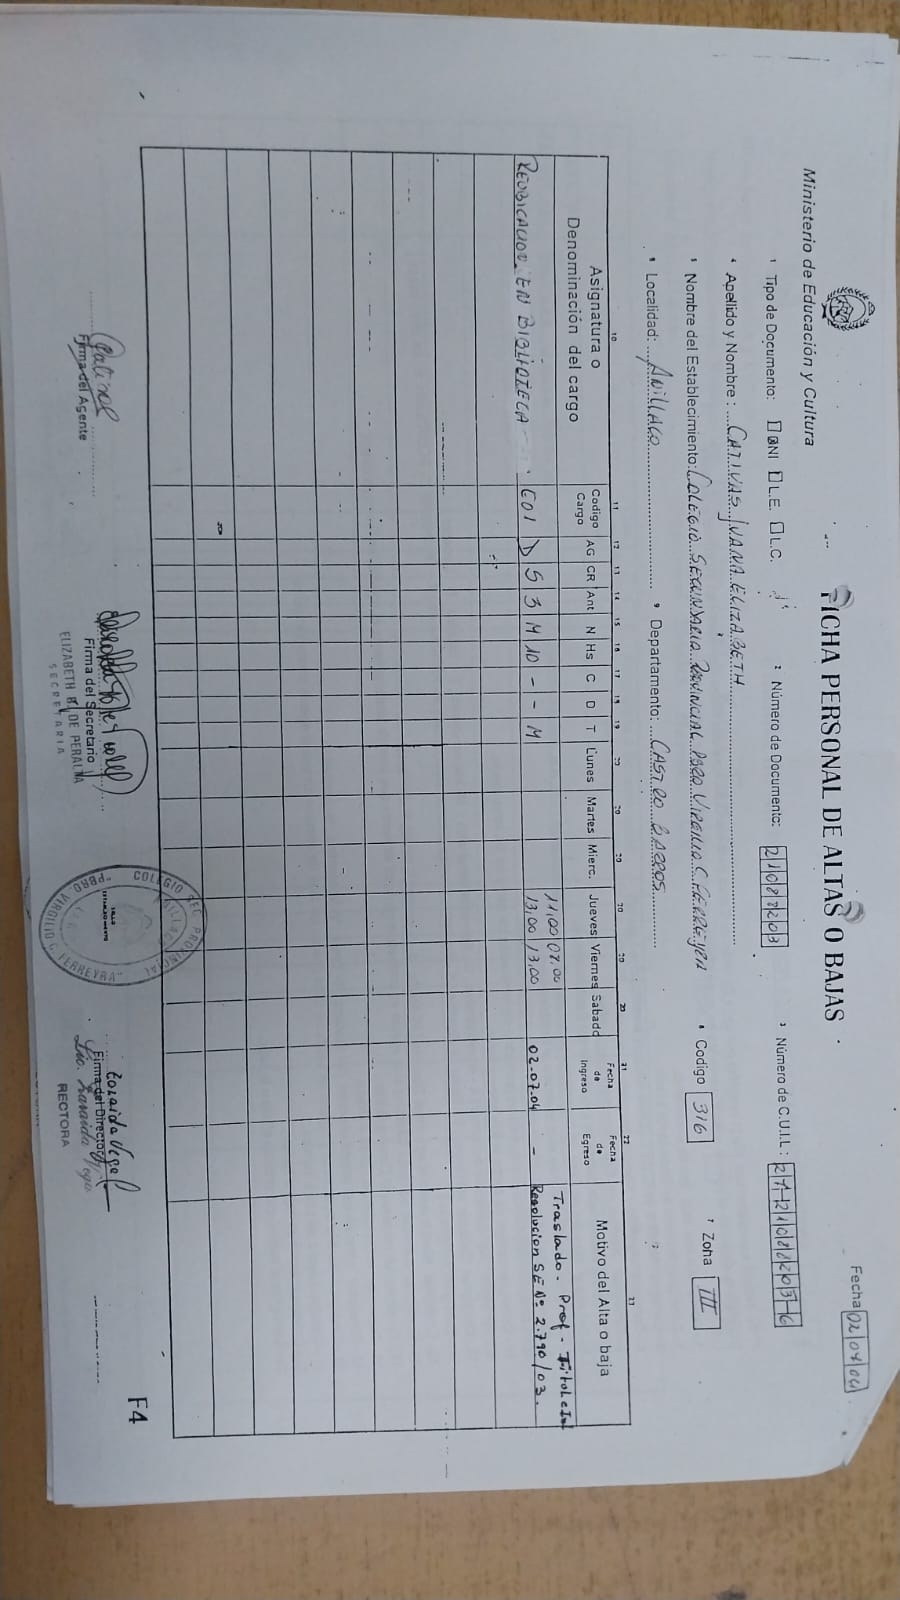 Ministerio de Educación y Cultura
FICHA PERSONAL DE ALTAS O BAJAS
Fecha 02/07/04
1 Tipo de Documento: DNI L.E. L.C.
2 Número de Documento: 21088203
3 Número de C.U.I.L.: 27-21088203-6
4 Apellido y Nombre: CATIVAS JUANA ELIZABETH
5 Nombre del Establecimiento: COLEGIO SECUNDARIO PROVINCIAL PBRO VIRGILIO C. FERREYRA
6 Codigo 316
7 Zona III
8 Localidad: ANILLACO
9 Departamento: CASTRO BARROS
10 11 12 13 14 15 16 17 18 19 20 20 20 20 20 20 21 22 23
Asignatura o Denominación del cargo Codigo Cargo AG CR Ant N Hs C D T Lunes Martes Mierc. Jueves Viernes Sabado Fecha de Ingreso Fecha de Egreso Motivo del Alta o baja
11,00 07.00 Traslado. Prof. Titular
REUBICACION EN BIBLIOTECA C01 D S 3 M 10 - - M 13,00 13,00 02.07.04 - Resolucion SE Nº 2.790/03.
Firma del Agente
Firma del Secretario
ELIZABETH DE PERALTA
SECRETARIA
COLEGIO SEC PROVINCIAL "PBRO. VIRGILIO C. FERREYRA"
ANILLACO
Zoraida Vega
Firma del Director
Lic. Zoraida Vega
RECTORA
F4